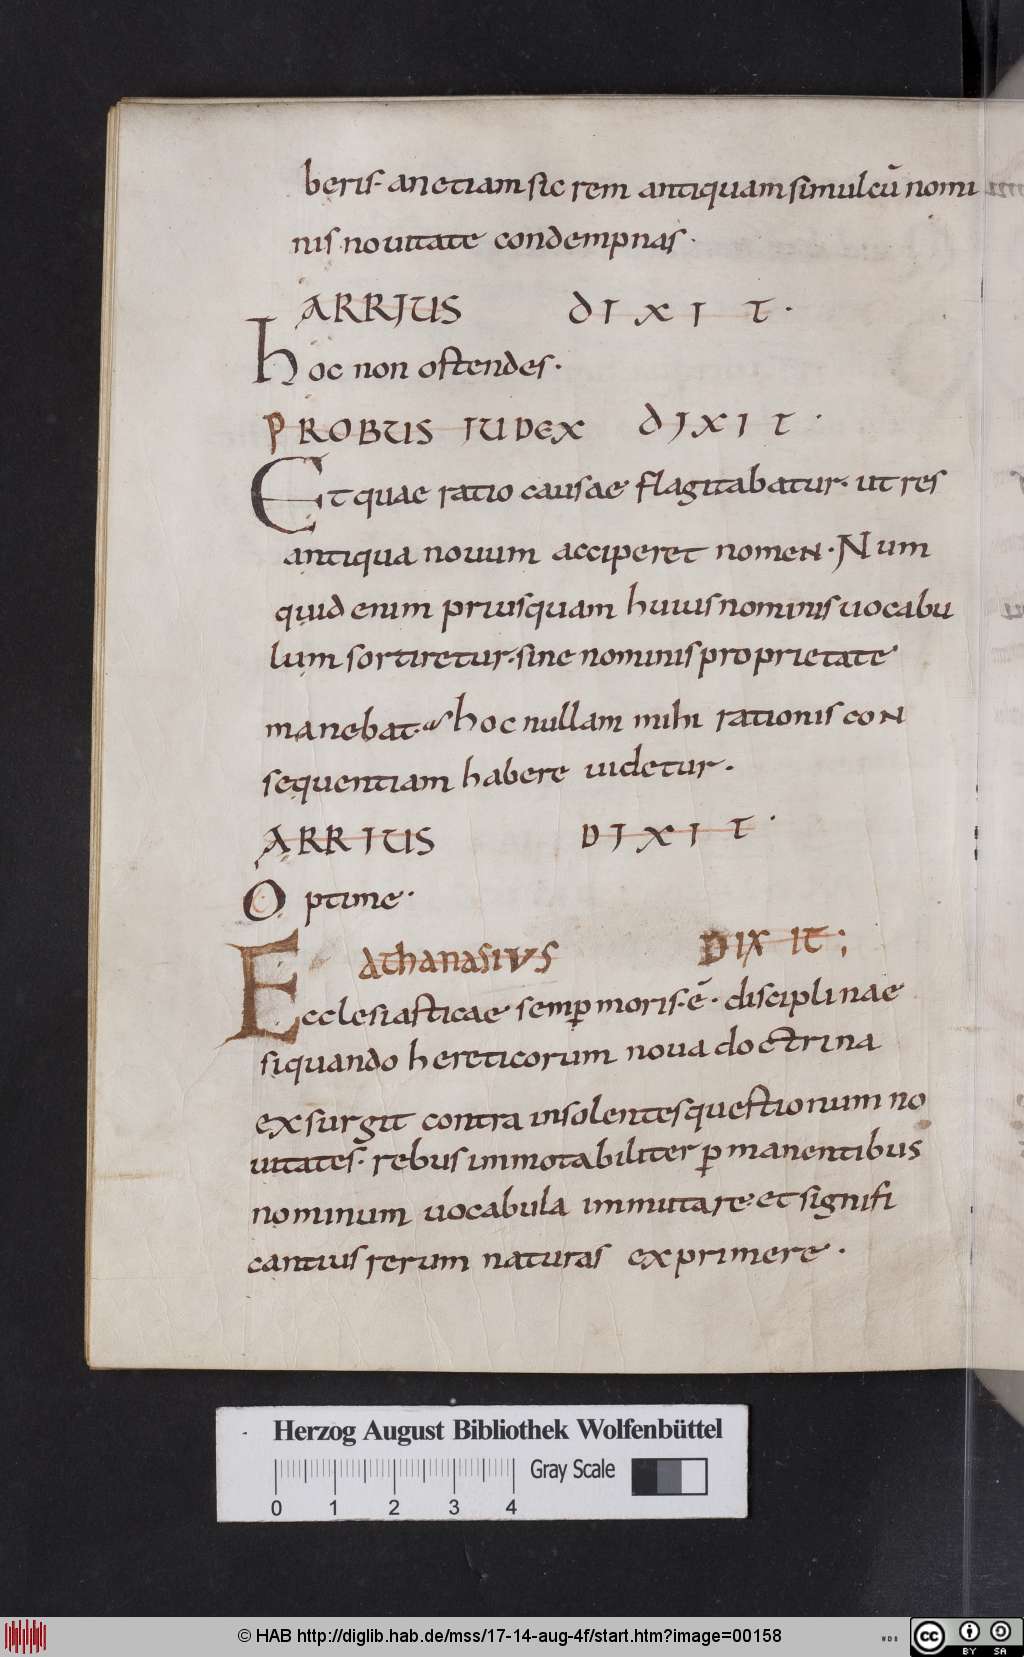 beris· an etiam sic rem antiquam simul cū nomi
nis nouitate condempnas·
ARRIUS DIXIT·
hoc non ostendes·
PROBUS IUDEX DIXIT·
Et quae ratio causae flagitabatur· ut res
antiqua nouum acciperet nomen· Num
quid enim priusquam huius nominis uocabu
lum sortiretur· sine nominis proprietate
manebat· hoc nullam mihi rationis con
sequentiam habere uidetur·
ARRIUS DIXIT·
Optime·
Athanasius DIXIT;
Ecclesiasticae semꝑ moris· ē· disciplinae
siquando hereticorum noua doctrina
exsurgit contra insolentes questionum no
uitates· rebus immotabiliter ꝑmanentibus
nominum uocabula immutare· et signifi
cantius rerum naturas exprimere·
Herzog August Bibliothek Wolfenbüttel
Gray Scale
0 1 2 3 4
© HAB http://diglib.hab.de/mss/17-14-aug-4f/start.htm?image=00158
WDB
cc BY SA